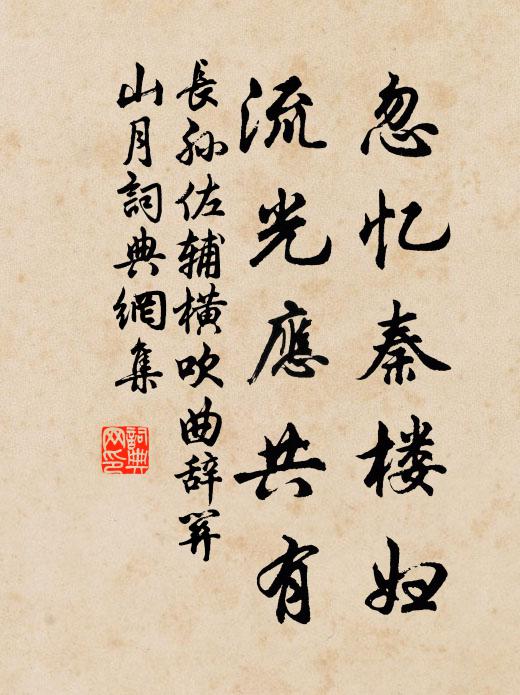 忽忆秦楼妇
流光應共有
長孙佐辅橫吹曲辞關
山月詞典網集
詞典网印